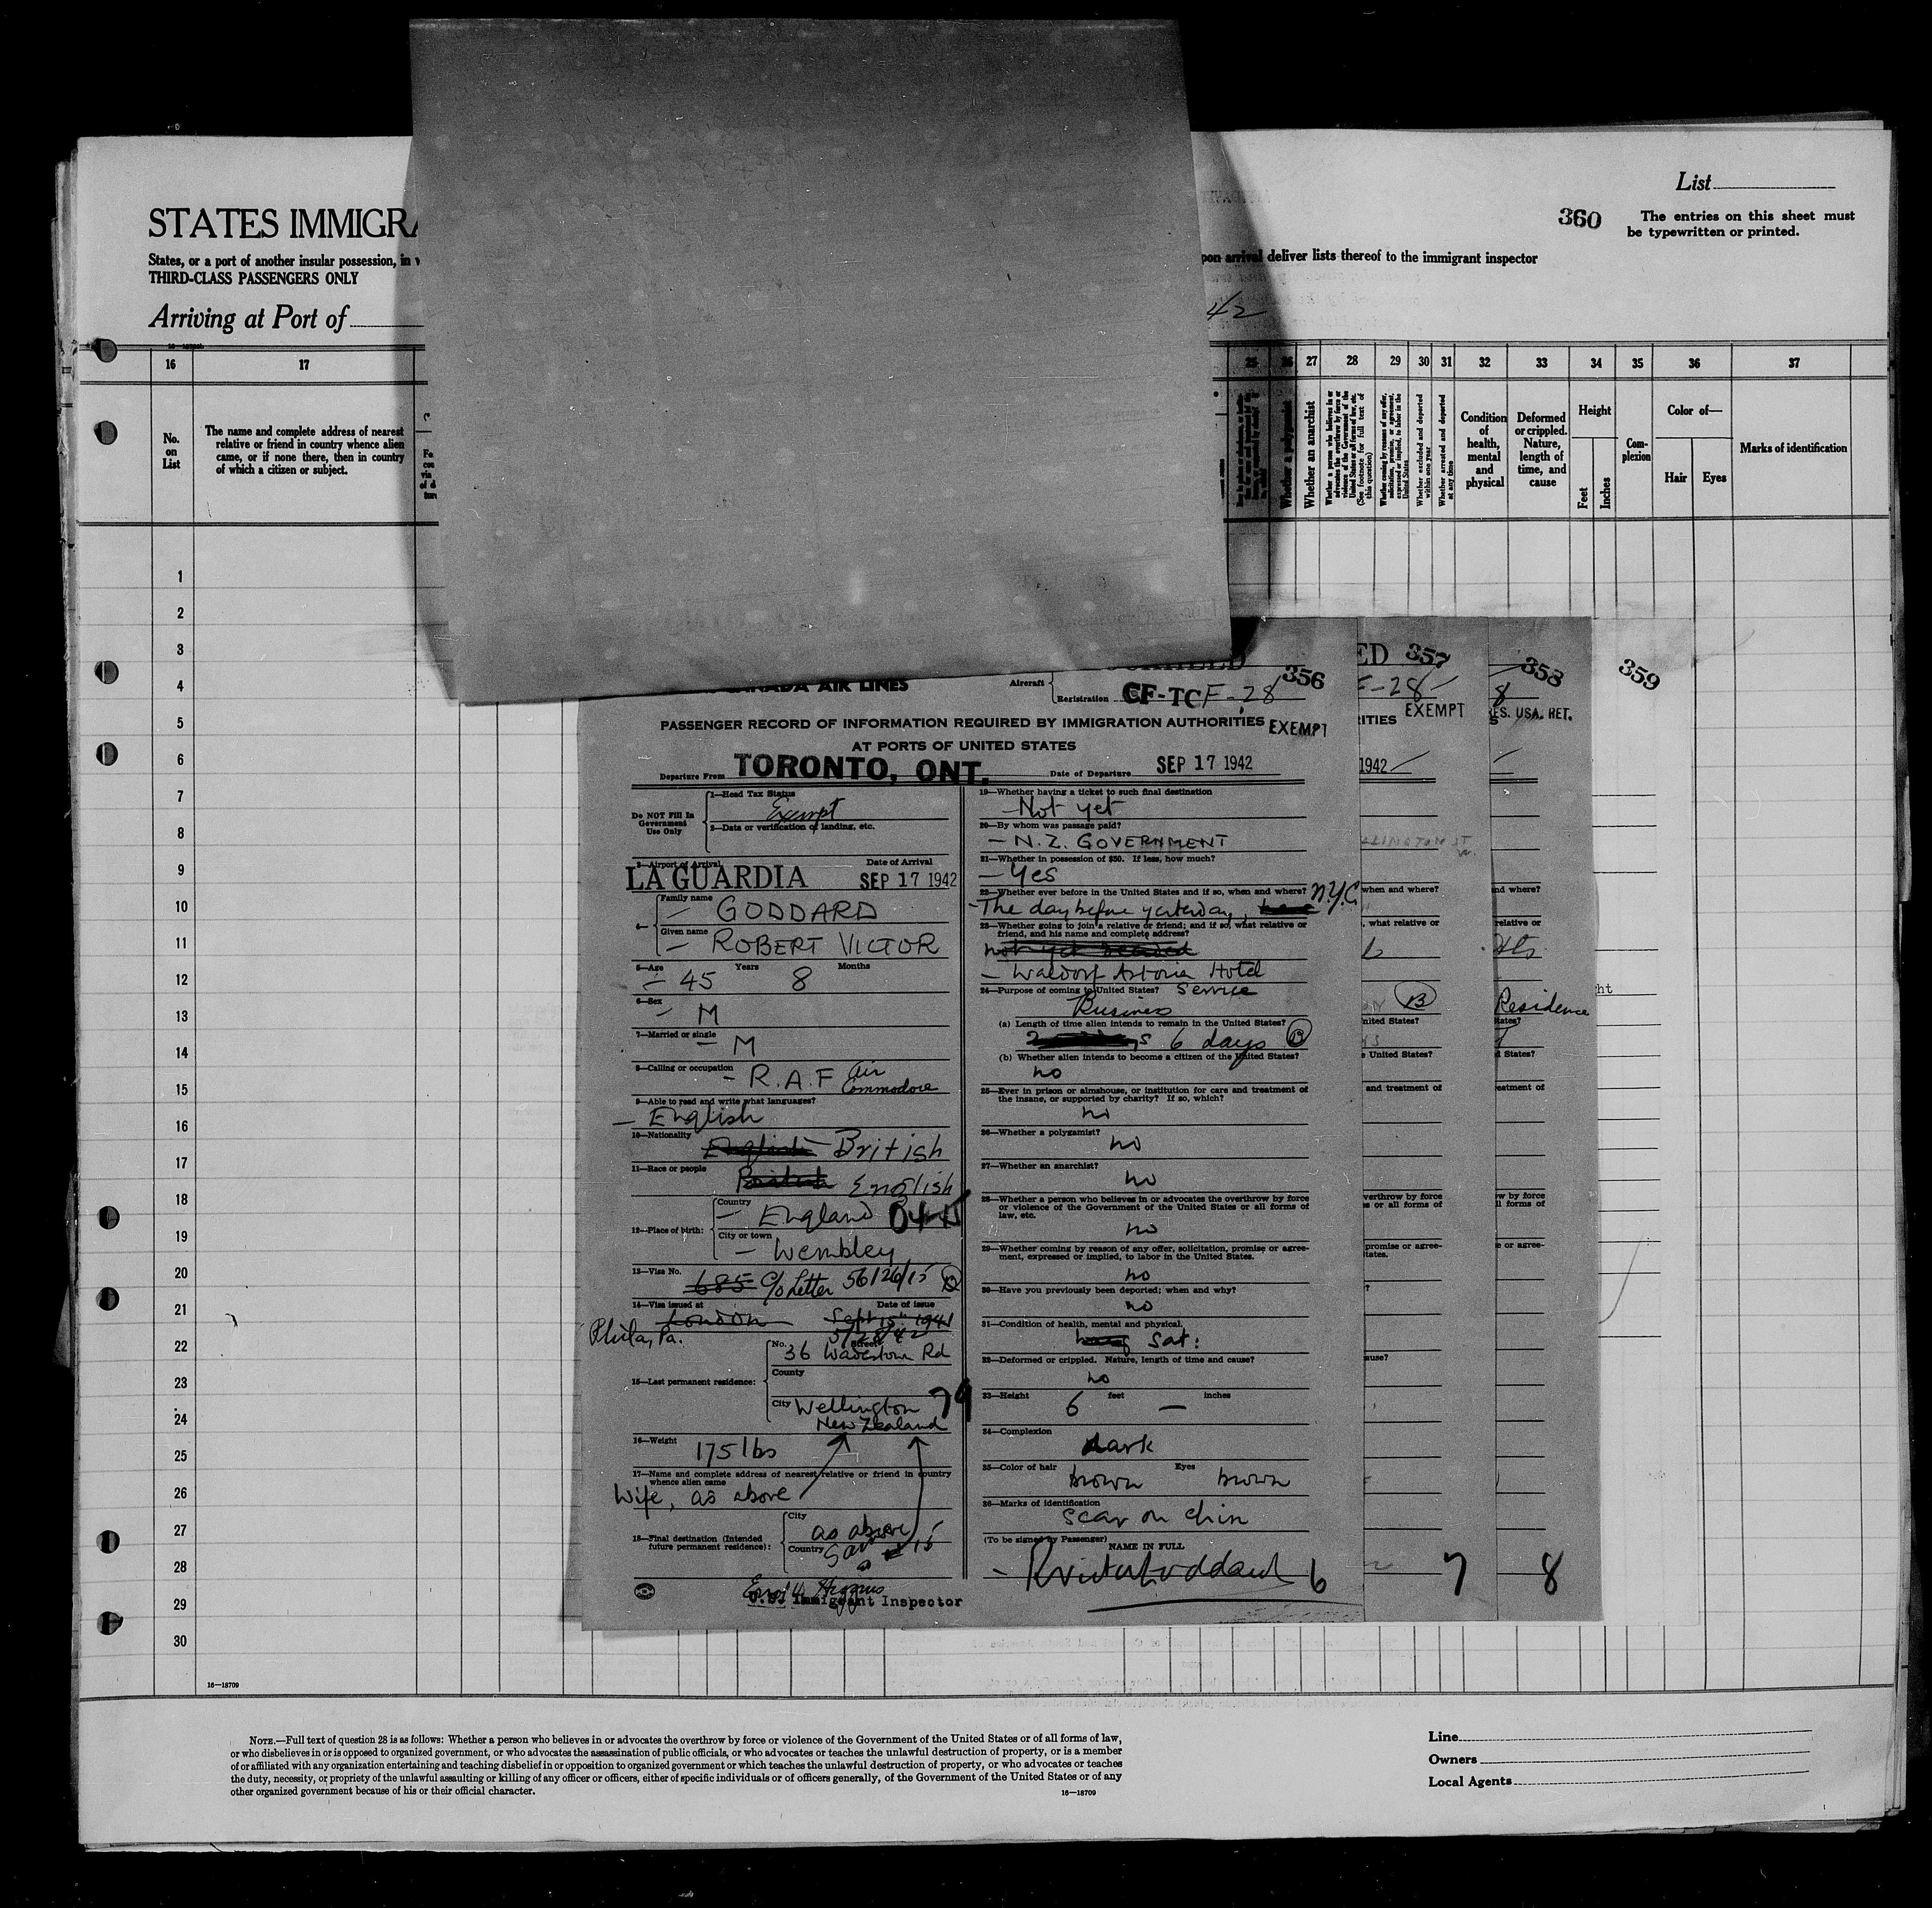 List
360
The entries on this sheet must
be typewritten or printed.
STATES IMMIGRA
States, or a port of another insular possession, in
pon arrival deliver lists thereof to the immigrant inspector
THIRD-CLASS PASSENGERS ONLY
Arriving at Port of
42
16 17 25 26 27 28 29 30 31 32 33 34 35 36 37
No.
on
List
The name and complete address of nearest
relative or friend in country whence alien
came, or if none there, then in country
of which a citizen or subject.
Whether a polygamist
Whether an anarchist
Whether a person who believes in or
advocates the overthrow by force or
violence of the Government of the
United States or all forms of law, etc.
(See footnote for full text of
this question)
Whether coming by reason of any offer,
solicitation, promise, or agreement,
expressed or implied, to labor in the
United States
Whether excluded and deported
within one year
Whether arrested and deported
at any time
Condition
of
health,
mental
and
physical
Deformed
or crippled.
Nature,
length of
time, and
cause
Height
Feet
Inches
Com-
plexion
Color of—
Hair
Eyes
Marks of identification
1
2
3
4
5
6
7
8
9
10
11
12
13
14
15
16
17
18
19
20
21
22
23
24
25
26
27
28
29
30
16—18709
CANADA AIR LINES
Aircraft
Registration CF-TCF-28
356
PASSENGER RECORD OF INFORMATION REQUIRED BY IMMIGRATION AUTHORITIES
EXEMPT
AT PORTS OF UNITED STATES
Departure From TORONTO, ONT.
Date of Departure SEP 17 1942
Do NOT Fill In
Government
Use Only
1—Head Tax Status
Exempt
2—Data or verification of landing, etc.
3—Airport of Arrival
Date of Arrival
LA GUARDIA SEP 17 1942
4—
Family name
— GODDARD
Given name
— ROBERT VICTOR
5—Age Years Months
— 45 8
6—Sex
— M
7—Married or single
— M
8—Calling or occupation
- R.A.F Air
Commodore
9—Able to read and write what languages?
— English
10—Nationality
English British
11—Race or people
British English
12—Place of birth:
Country
— England
City or town
— Wembley
13—Visa No.
685 C/o Letter 56/26/15
14—Visa issued at
Date of issue
London Sept 15th 1941
Phila, Pa. 5/28/42
15—Last permanent residence:
No. Street
36 Wadestown Rd
County
City Wellington 79
New Zealand
16—Weight
175 lbs
17—Name and complete address of nearest relative or friend in country
whence alien came
Wife, as above
18—Final destination (Intended
future permanent residence):
City
as above
Country
U.S. Immigrant Inspector
19—Whether having a ticket to such final destination
— Not yet
20—By whom was passage paid?
— N.Z. GOVERNMENT
21—Whether in possession of $50. If less, how much?
— Yes
22—Whether ever before in the United States and if so, when and where?
N.Y.C.
- The day before yesterday,
23—Whether going to join a relative or friend; and if so, what relative or
friend, and his name and complete address?
not yet decided
— Waldorf Astoria Hotel
24—Purpose of coming to United States? Service
Business
(a) Length of time alien intends to remain in the United States?
6 days B
(b) Whether alien intends to become a citizen of the United States?
no
25—Ever in prison or almshouse, or institution for care and treatment of
the insane, or supported by charity? If so, which?
no
26—Whether a polygamist?
no
27—Whether an anarchist?
no
28—Whether a person who believes in or advocates the overthrow by force
or violence of the Government of the United States or all forms of
law, etc.
no
29—Whether coming by reason of any offer, solicitation, promise or agree-
ment, expressed or implied, to labor in the United States.
no
30—Have you previously been deported; when and why?
no
31—Condition of health, mental and physical.
Sat:
32—Deformed or crippled. Nature, length of time and cause?
no
33—Height feet inches
6 —
34—Complexion
dark
35—Color of hair Eyes
brown brown
36—Marks of identification
Scar on chin
(To be signed by Passenger)
NAME IN FULL
- RVictorGoddard 6
ED 357
F-28-
EXEMPT
ITIES
1942
LLINGTON ST
W.
when and where?
, what relative or
B
nited States?
e United States?
and treatment of
verthrow by force
s or all forms of
promise or agree-
tates.
?
ause?
7
358
8
ES. USA. RET.
S
nd where?
relative or
Residence
tates?
d States?
eatment of
w by force
ll forms of
e or agree-
8
359
ht
NOTE.—Full text of question 28 is as follows: Whether a person who believes in or advocates the overthrow by force or violence of the Government of the United States or of all forms of law,
or who disbelieves in or is opposed to organized government, or who advocates the assassination of public officials, or who advocates or teaches the unlawful destruction of property, or is a member
of or affiliated with any organization entertaining and teaching disbelief in or opposition to organized government or which teaches the unlawful destruction of property, or who advocates or teaches
the duty, necessity, or propriety of the unlawful assaulting or killing of any officer or officers, either of specific individuals or of officers generally, of the Government of the United States or of any
other organized government because of his or their official character.
16—18709
Line
Owners
Local Agents